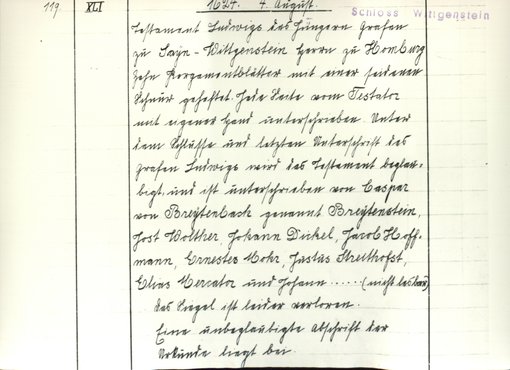 119 XLI 1627. 4. August. Schloss Wittgenstein
Testament Ludwigs des Jüngern Grafen
zu Sayn-Wittgenstein Herrn zu Homburg
Zehn Pergamentblätter mit einer seidenen
Schnur geheftet. Jede Seite vom Testator
mit eigener Hand unterschrieben. Unter
dem Schlusse und letzten Unterschrift des
Grafen Ludwigs wird das Testament beglau-
bigt, und ist unterschrieben von Caspar
von Breytenbach genannt Breytenstein,
Jost Wolther, Johann Dickel, Jacob Hoff-
mann, Ernestes Mohr, Justus Streithofst,
Elias Mercator und Johann ...... (nicht lesbar)
das Siegel ist leider verloren.
Eine unbeglaubigte Abschrift der
Urkunde liegt bei.